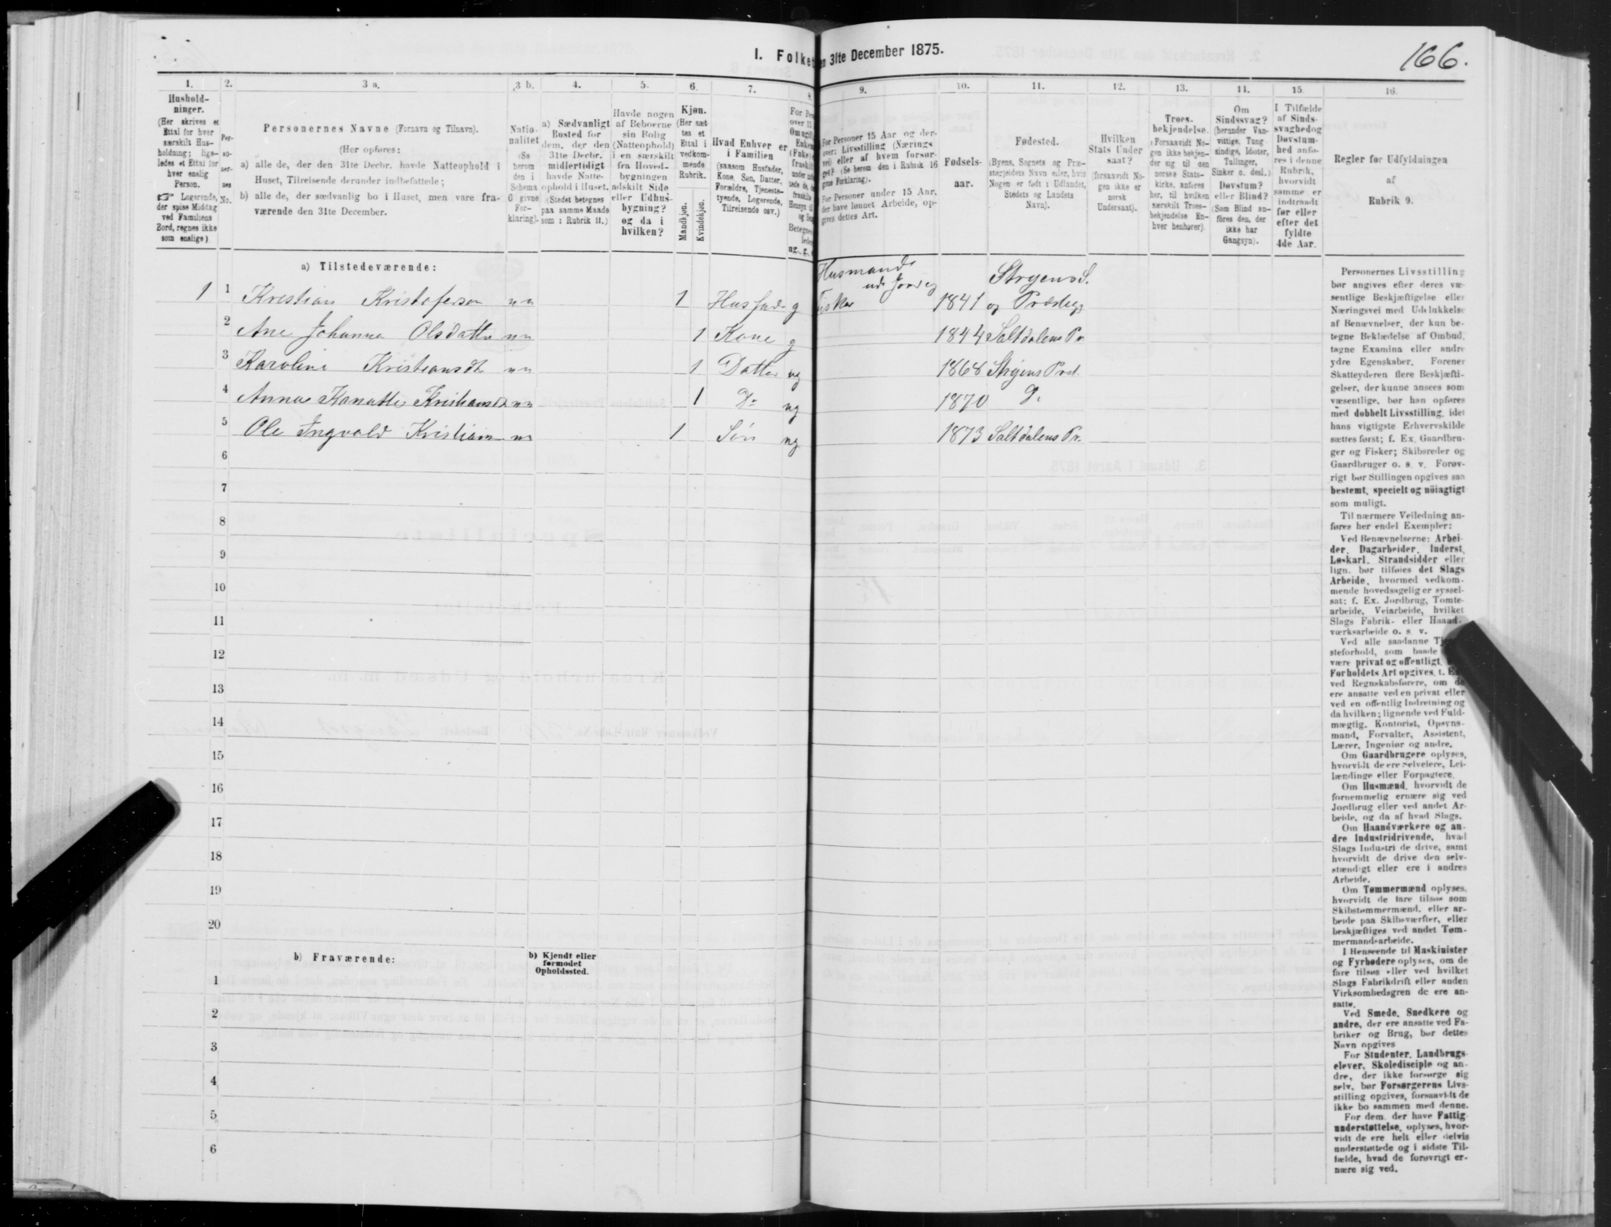 166.
I. Folke
n 31te December 1875.
1. 2. 3 a. 3 b. 4. 5. 6. 7. 8 9. 10. 11. 12. 13. 14. 15. 16.
Hushold-
ninger.
(Her skrives et
Ettal for hver
særskilt Hus-
holdning; lige-
ledes et Ettal for
hver enslig
Person.
Logerende,
der spise Middag
ved Familiens
Bord, regnes ikke
som enslige).
Per-
so-
ner-
nes
No.
Personernes Navne (Fornavn og Tilnavn).
(Her opføres:
a) alle de, der den 31te Decbr. havde Natteophold i
Huset, Tilreisende derunder indbefattede;
b) alle de, der sædvanlig bo i Huset, men vare fra-
værende den 31te December.
Natio-
nalitet
(Se
herom
den i
Schema
6 givne
For-
klaring).
a) Sædvanligt
Bosted for
dem, der den
31te Decbr.
midlertidigt
havde Natte-
ophold i Huset.
(Stedet betegnes
paa samme Maade
som i Rubrik 11.)
Havde nogen
af Beboerne
sin Bolig
(Natteophold)
i en særskilt
fra Hoved-
bygningen
adskilt Side
eller Udhus-
bygning?
og da i
hvilken?
Kjøn.
(Her sæt
tes et
Ettal i
vedkom-
mende
Rubrik.
Mandkjøn.
Kvindekjøn.
Hvad Enhver er
i Familien
(saasom Husfader,
Kone, Søn, Datter,
Forældre, Tjeneste-
tyende, Logerende,
Tilreisende osv.)
For Personer 15 Aar og der-
over: Livsstilling (Nærings
vei) eller af hvem forsør-
get? (Se herom den i Rubrik 16
givne Forklaring).
For Personer under 15 Aar,
der have lønnet Arbeide, op-
gives dettes Art.
Fødsels-
aar.
Fødested.
(Byens, Sognets og Præ-
stegjeldets Navn eller, hvis
Nogen er født i Udlandet,
Stedets og Landets
Navn).
Hvilken
Stats Under
saat?
(forsaavidt No-
gen ikke er
norsk
Undersaat).
Troes-
bekjendelse.
(Forsaavidt No-
gen ikke bekjen-
der sig til den
norske Stats-
kirke, anføres
her, til hvilken
særskilt Troes-
bekjendelse En-
hver henhører).
Om
Sindssvag?
(herunder Van-
vittige, Tung-
sindige, Idioter,
Tullinger,
Sinker o. desl.)
Døvstum?
eller Blind?
(Som Blind an-
føres den, der
ikke har
Gangsyn).
I Tilfælde
af Sinds-
svaghed og
Døvstum-
hed anfø-
res i denne
Rubrik,
hvorvidt
samme er
indtraadt
før eller
efter det
fyldte
4de Aar.
Regler for Udfyldningen
af
Rubrik 9.
a) Tilstedeværende:
1 1 Kristian Kristofersen n n 1 Husfader g Husmand med Jord og Fisker 1841 Skjens S. og Præstegj.
2 Ane Johanna Olsdatter n n 1 Kone g 1844 Saltdalens Pr.
3 Karolini Kristiansdt n n 1 Datter ug 1868 Skjens Præst.
4 Anna Kristiansdt n n 1 Do ug 1870 Do.
5 Ole Ingvald Kristians n n 1 Søn ug 1873 Saltdalens Pr.
6
7
8
9
10
11
12
13
14
15
16
17
18
19
20
b) Fraværende:
b) Kjendt eller
formodet
Opholdssted.
1
2
3
4
5
6
Personernes Livsstilling
bør angives efter deres væ-
sentlige Beskjæftigelse eller
Næringsvei med Udelukkelse
af Benævnelser, der kun be-
tegne Beklædelse af Ombud,
tagne Examina eller andre
ydre Egenskaber. Forener
Skatteyderen flere Beskjæfti-
gelser, der kunne ansees som
væsentlige, bør han opføres
med dobbelt Livsstilling, idet
hans vigtigste Erhvervskilde
sættes først; f. Ex. Gaardbru-
ger og Fisker; Skibsreder og
Gaardbruger o. s. v. Forøv-
rigt bør Stillingen opgives saa
bestemt, specielt og nøiagtigt
som muligt.
Til nærmere Veiledning an-
føres her endel Exempler:
Ved Benævnelserne: Arbei-
der, Dagarbeider, Inderst,
Løskarl, Strandsidder eller
lign. bør tilføies det Slags
Arbeide, hvormed vedkom-
mende hovedsagelig er syssel-
sat; f. Ex. Jordbrug, Tomte-
arbeide, Veiarbeide, hvilket
Slags Fabrik- eller Haand-
værksarbeide o. s. v.
Ved alle saadanne Tjene-
steforhold, som baade kan
være privat og offentligt, bør
Forholdets Art opgives, t. Ex.
ved Regnskabsførere, om de
ere ansatte ved en privat eller
ved en offentlig Indretning og
da hvilken; lignende ved Fuld-
mægtig, Kontorist, Opsyns-
mand, Forvalter, Assistent,
Lærer, Ingeniør og andre.
Om Gaardbrugere oplyses,
hvorvidt de ere Selveiere, Lei-
lændinge eller Forpagtere.
Om Husmænd, hvorvidt de
fornemmelig ernære sig ved
Jordbrug eller ved andet Ar-
beide, og da af hvad Slags.
Om Haandværkere og an-
dre Industridrivende, hvad
Slags Industri de drive, samt
hvorvidt de drive den selv-
stændigt eller ere i andres
Arbeide.
Om Tømmermænd oplyses,
hvorvidt de fare tilsøs som
Skibstømmermænd, eller ar-
beide paa Skibsværfter, eller
beskjæftiges ved andet Tøm-
mermandsarbeide.
I Henseende til Maskinister
og Fyrbødere oplyses, om de
fare tilsøs eller ved hvilket
Slags Fabrikdrift eller anden
Virksomhedsgren de ere an-
satte.
Ved Smede, Snedkere og
andre, der ere ansatte ved Fa-
briker og Brug, bør dettes
Navn opgives
For Studenter, Landbrugs-
elever, Skoledisciple og an-
dre, der ikke forsørge sig
selv, bør Forsørgerens Livs-
stilling opgives, forsaavidt de
ikke bo sammen med denne.
For dem, der have Fattig-
understøttelse, oplyses, hvor-
vidt de ere helt eller delvis
understøttede og i sidste Til-
fælde, hvad de forøvrigt er-
nære sig ved.